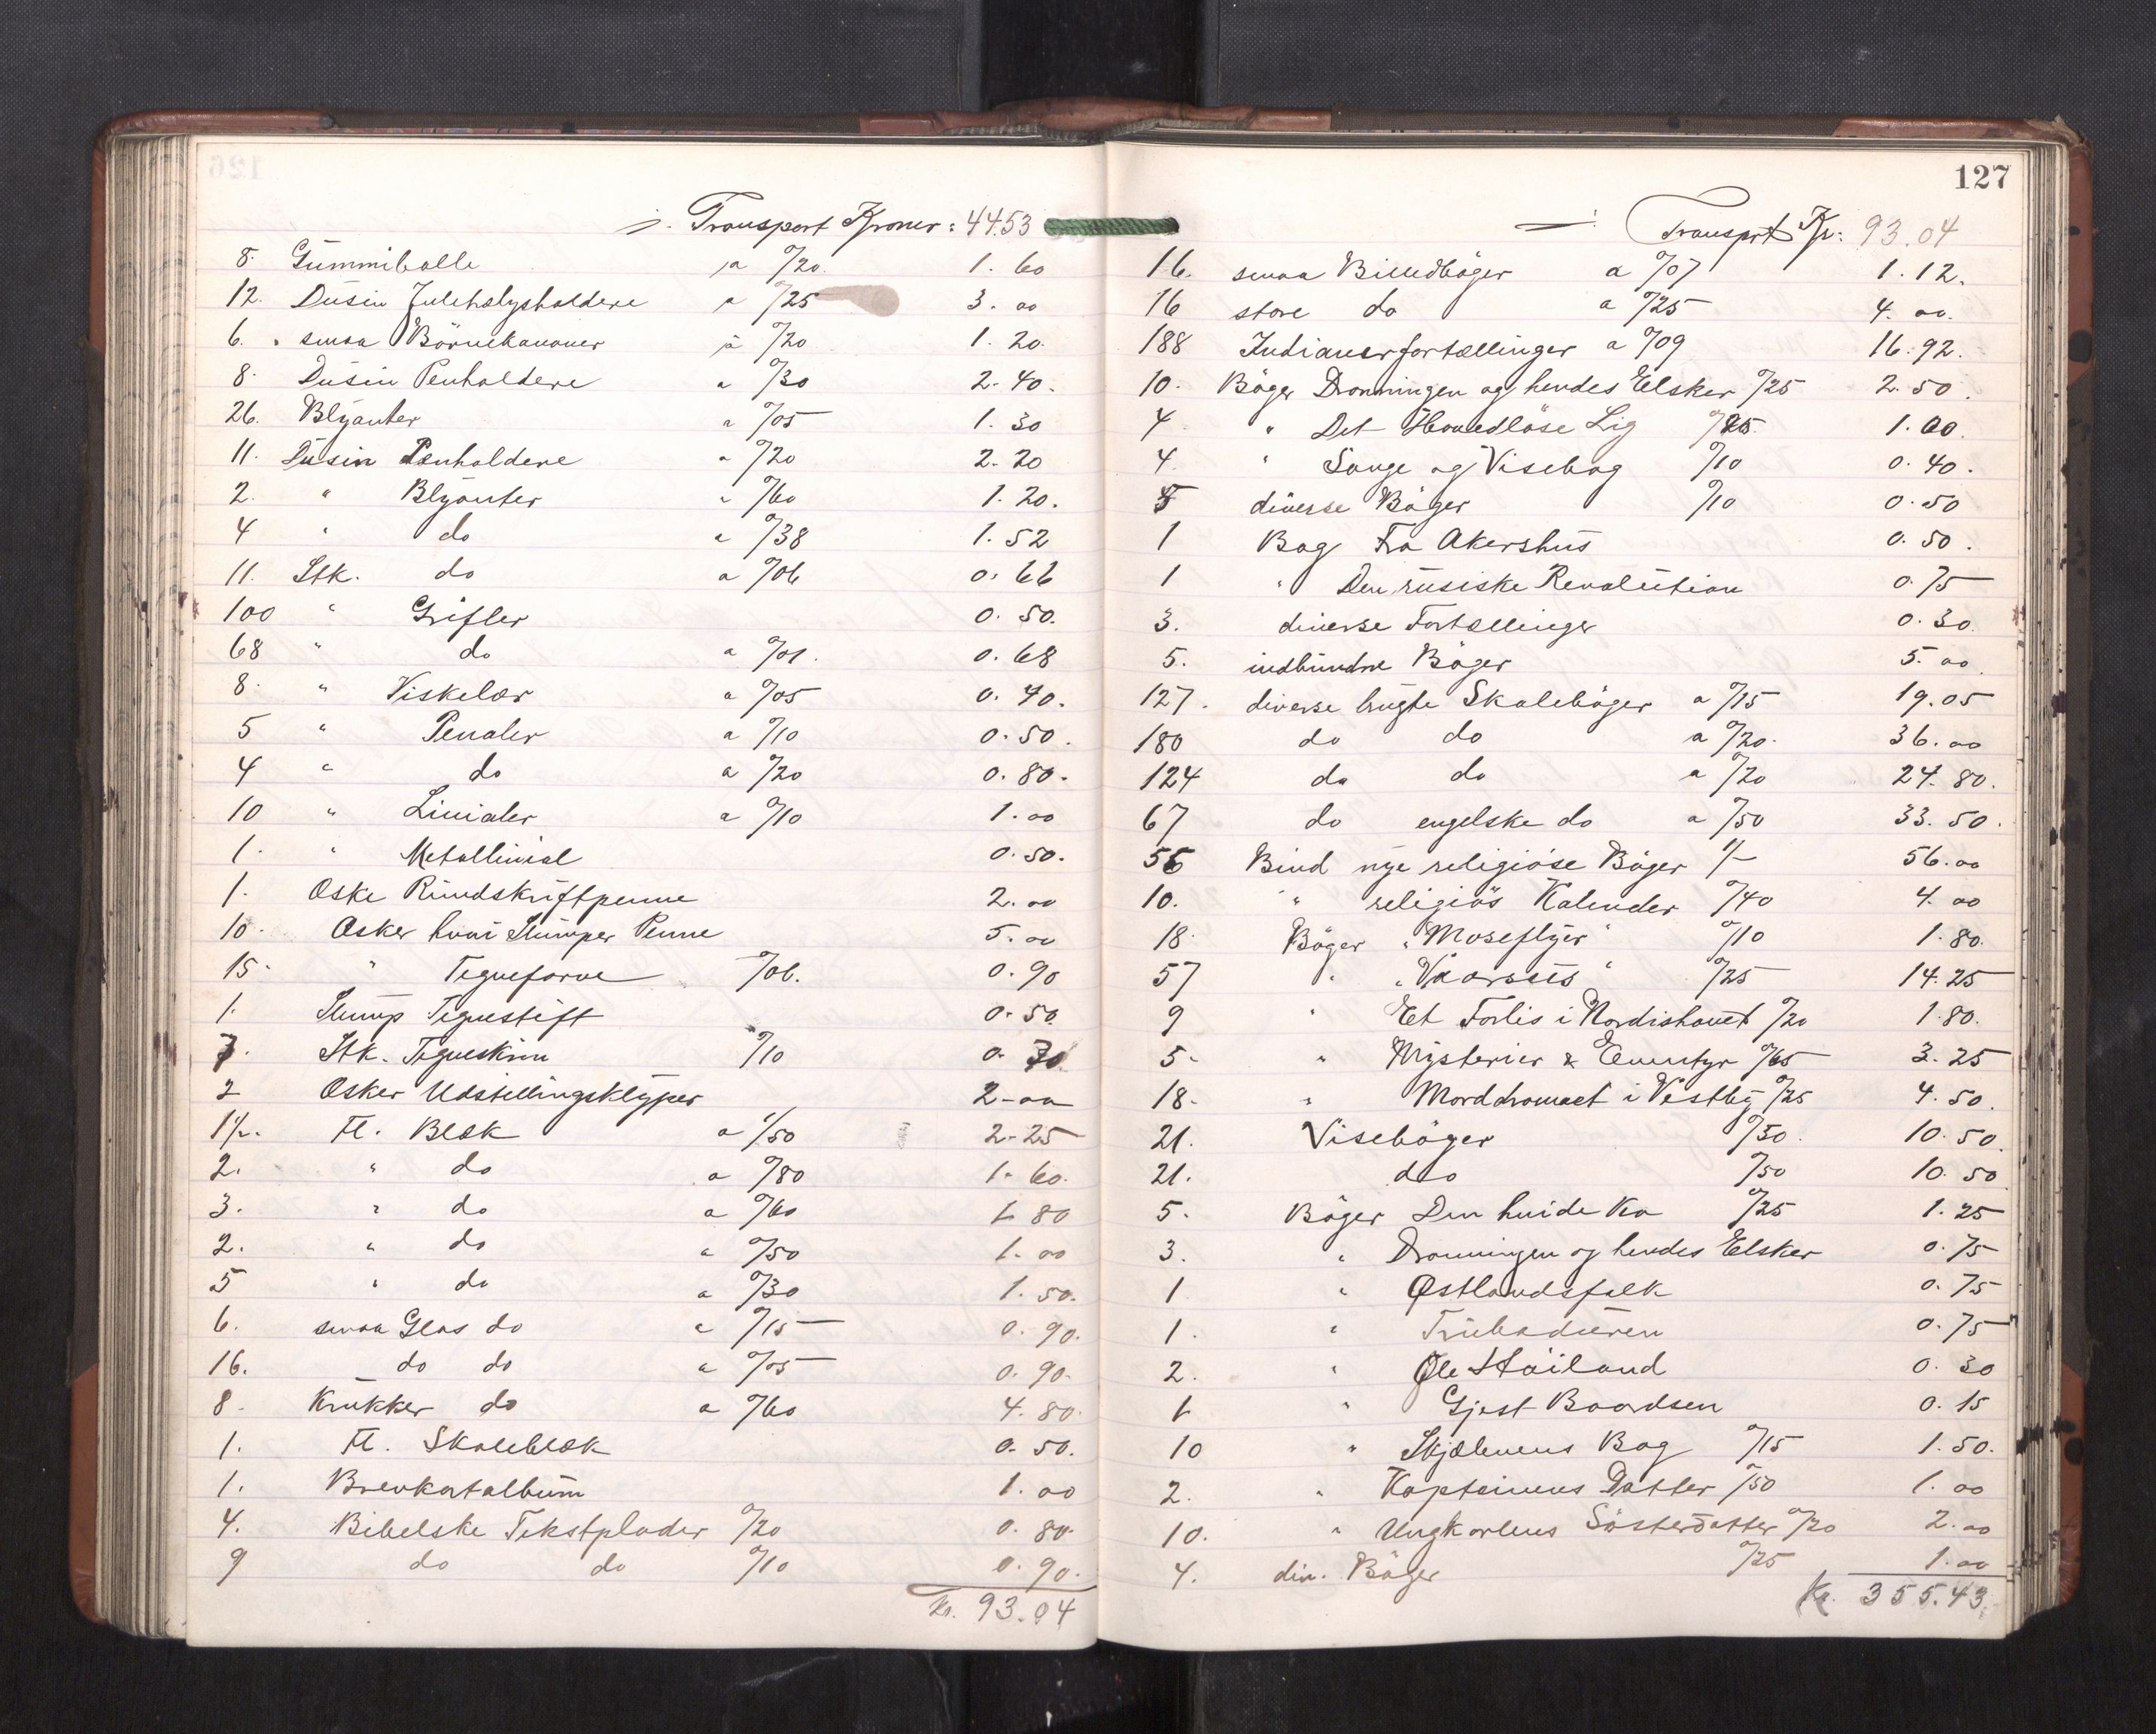 Transport Kroner: 44.53
8. Gümmiballe a 0/20. 1.60
12. Düsin Juletrælysholdere a 0/25 3.00
6. " smaa Börnekanoner a 0/20 1.20.
8. Düsin Penholdere a 0/30 2.40.
26. Blÿanter a 0/05 1.30
11. Düsin Penholdere " 0/20 2.20
2. " Blÿanter " 0/60 1.20.
4 " do a 0/38 1.52
11. Stk. do a 0/06 0.66
100 " Grifler 0.50.
68 " do a 0/01. 0.68
8. " Viskelær a 0/05 0.40.
5 " Penaler a 0/10 0.50.
4 " do a 0/20 0.80.
10 " Linialer a 0/10 1.00
1. " Metallinial 0.50.
1. Æske Ründskriftpenne 2.00
10. Æsker Penne 5.00
15. " Tegnefarve 0/06. 0.90
1. Tegnestift 0.50
7. Stk. Tegneskrin 0/10 0.70
2 Æsker Udstillingsklÿper 2.00
1½. Fl. Blæk a 1/50 2.25
2. " do a 0/80 1.60.
3. " do a 0/60 1.80
2. " do " 0/50 1.00
5 " do a 0/30 1.50.
6. smaa Glas do a 0/15 0.90.
16. do do a 0/05 0.90.
8. Krükker do a 0/60 4.80.
1. Fl. Skoleblæk 0.50.
1. Brevkortalbüm 1.00
4. Bibelske Tekstplader 0/20 0.80.
9 do do 0/10 0.90.
Kr. 93.04
127
Transport Kr: 93.04
16. smaa Billedböger a 0/07 1.12.
16 store do a 0/25 4.00.
188 Indianerfortællinger a 0/09 16.92.
10. Böger Dronningen og hendes Elsker 0/25 2.50.
4 " Det Hovedlöse Lig 0/25 1.00.
4. " Sange og Visebog 0/10 0.40.
5 diverse Böger 0/10 0.50
1 Bog Fra Akershüs 0.50.
1 " Den rüsiske Revolütion 0.75
3. diverse Fortællinger 0.30
5. indbündne Böger 5.00
127. diverse brügte Skoleböger a 0/15 19.05
180 do do a 0/20. 36.00
124 do do a 0/20 24.80.
67 do engelske do a 0/50 33.50.
56 Bind nye religiöse Böger 1/- 56.00
10. " religiös Kalender 0/40 4.00
18. Böger "Moseflÿer" 0/10 1.80.
57 " "Vaarsüs" 0/25 14.25
9 " Et Forlis i Nordishavet 0/20 1.80.
5. " Mÿsterier & Eventyr 0/65 3.25
18. " Morddramaet i Vestbÿ 0/25 4.50.
21. Viseböger 0/50. 10.50.
21. do 0/50 10.50
5. Böger Den hvide Ko 0/25 1.25
3. " Dronningen og hendes Elsker 0.75
1 " Østlandsfolk 0.75
1. " Trübadüren 0.75
2. " Ole Höiland 0.30
1 " Gjest Baardsen 0.15
10 " Skjæbnens Bog 0/15 1.50.
2. " Kapteinens Datter 0/50 1.00
10. " Ungkarlens Sösterdatter 0/20 2.00
4. div. Böger 0/25 1.00
Kr. 355.43